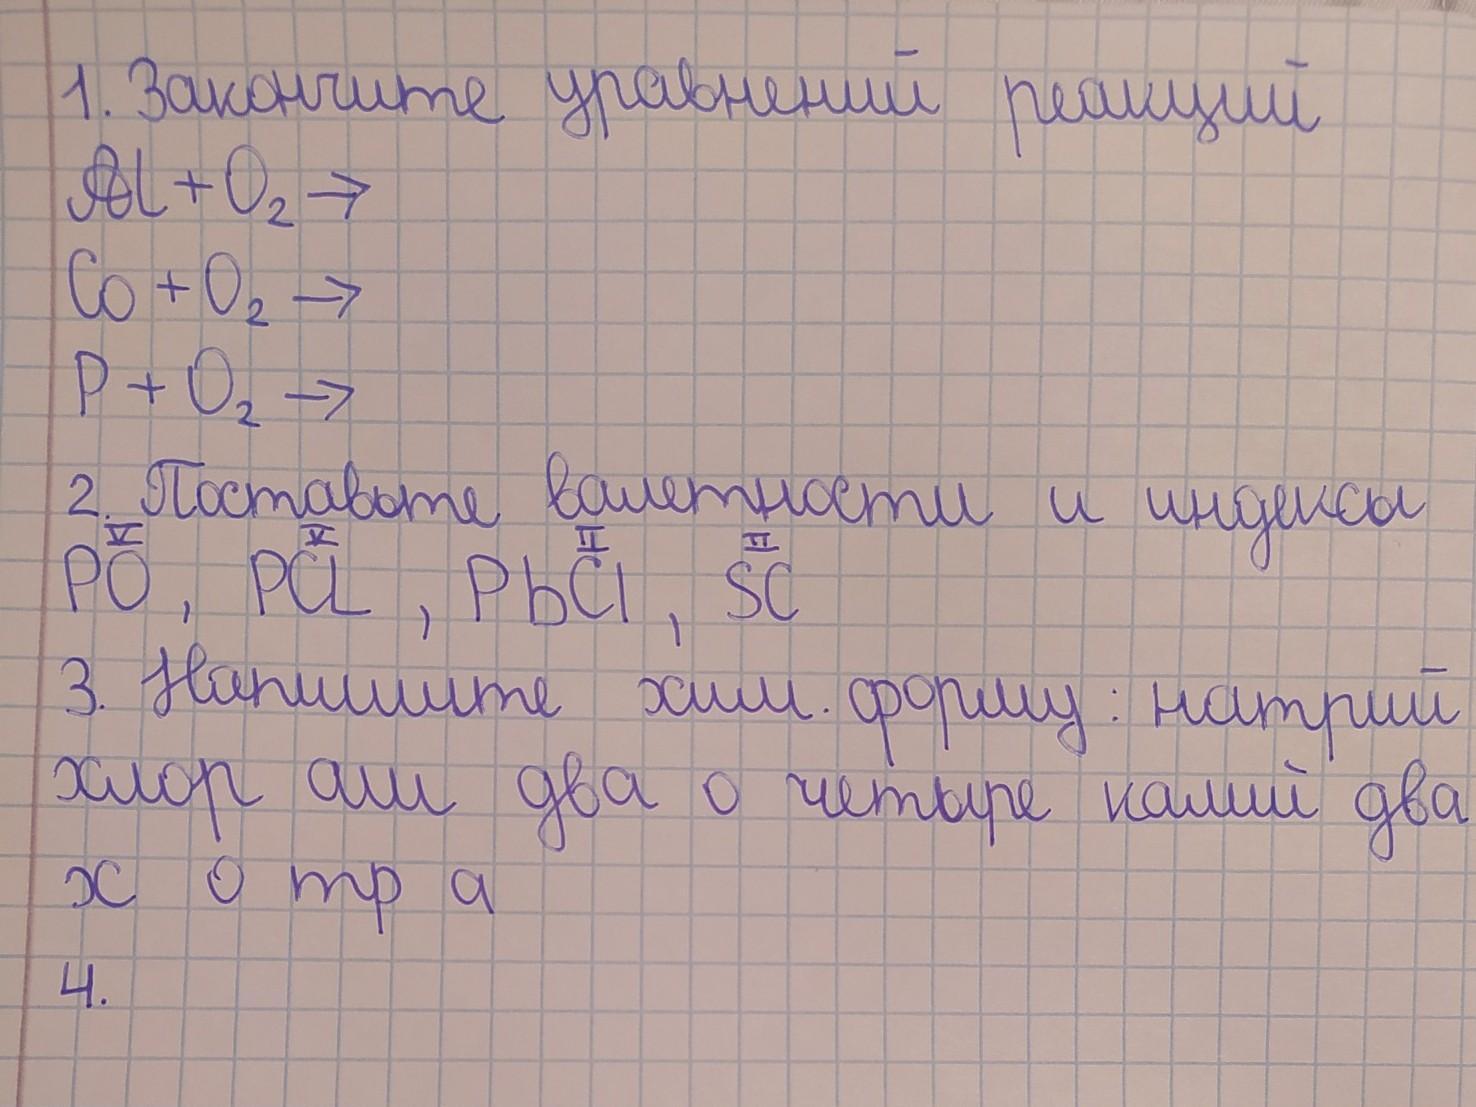 1. Закончите уравнений реакций
Al + O₂ →
Co + O₂ →
P + O₂ →
2. Поставьте валетности и индексы
V V II II
PO, PCL, PbCl, SC
3. Напишите хим. форму: натрий
хлор аш два о четыре калий два
х о тр а
4.